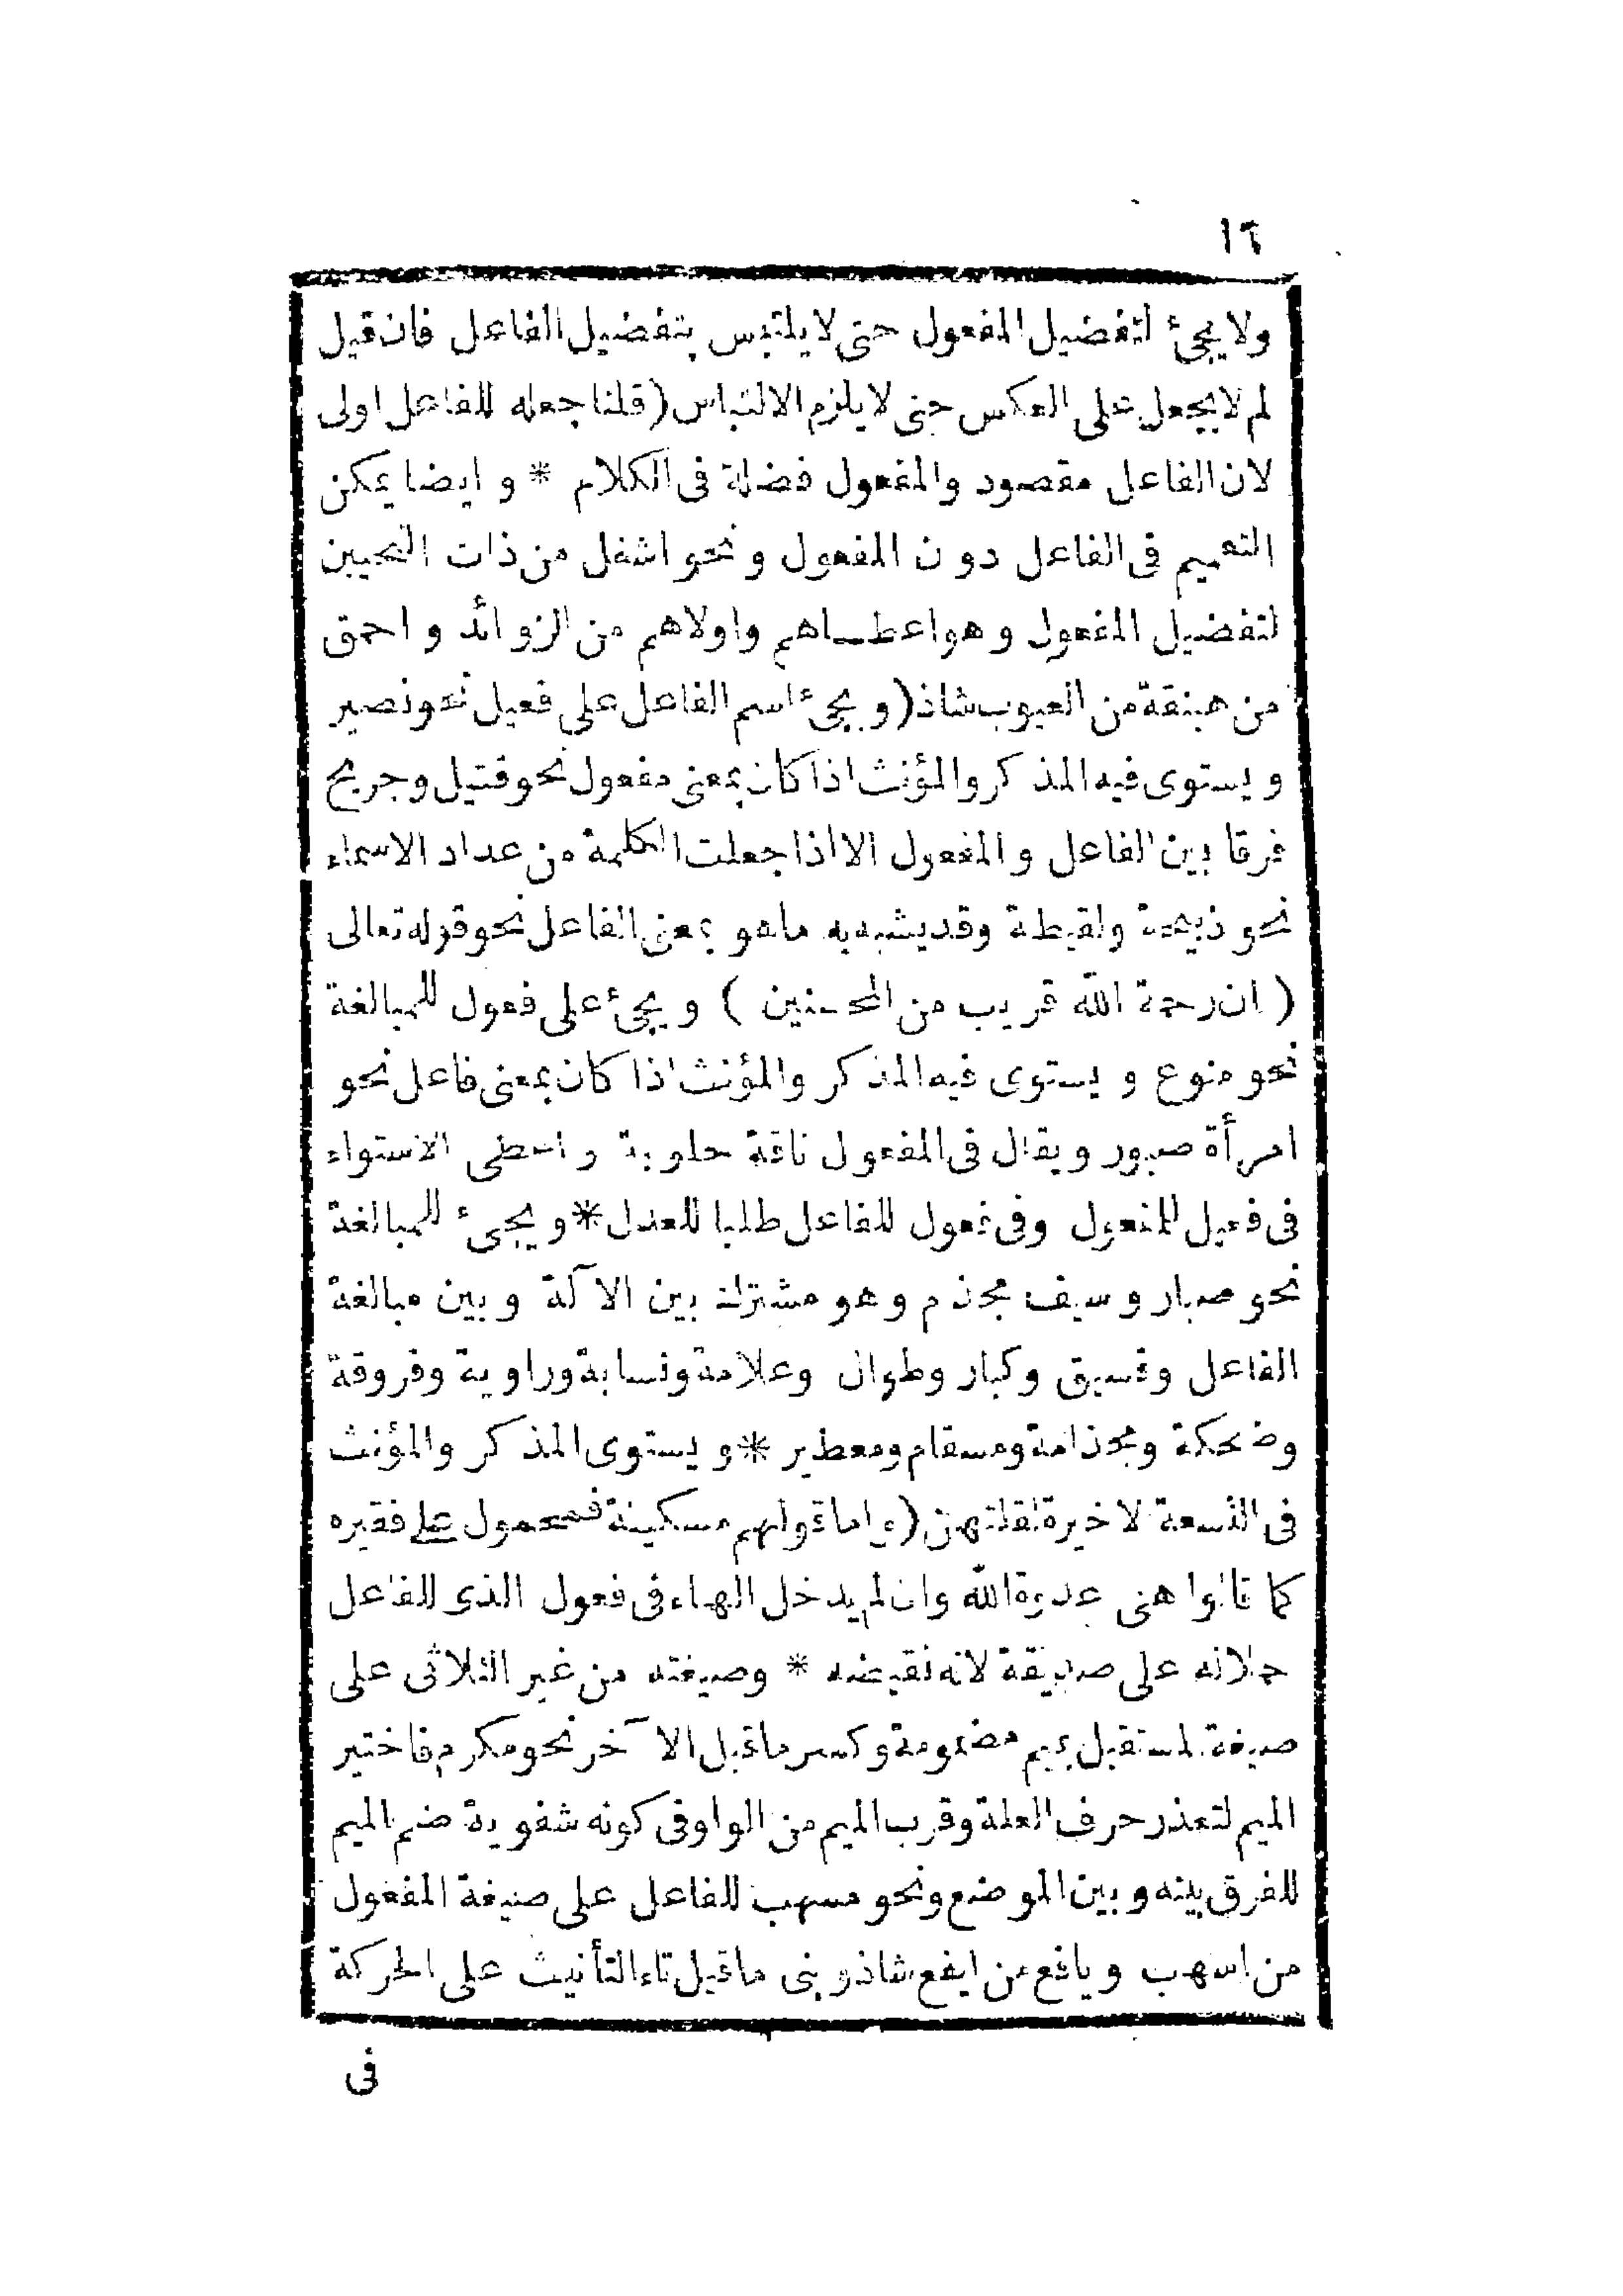 ١٦
ولا يجئ لتفضيل المفعول حتى لا يلتبس بتفضيل الفاعل فان قيل
لم لا يجعل على العكس حتى لا يلزم الالتباس (قلنا جعله للفاعل اولى
لان الفاعل مقصود والمفعول فضلة فى الكلام * و ايضا يمكن
التعميم فى الفاعل دون المفعول و نحو اشغل من ذات النحيين
لتفضيل المفعول و هو اعطاهم واولاهم من الزوائد و احمق
من هبنقة من العيوب شاذ (و يجئ اسم الفاعل على فعيل نحو نصير
و يستوى فيه المذكر والمؤنث اذا كان بمعنى مفعول نحو قتيل وجريح
فرقا بين الفاعل و المفعول الا اذا جعلت الكلمة من عداد الاسماء
نحو ذبيحة ولقيطة وقد يشبه به ما هو بمعنى الفاعل نحو قوله تعالى
( ان رحمة الله قريب من المحسنين ) و يجئ على فعول للمبالغة
نحو منوع و يستوى فيه المذكر والمؤنث اذا كان بمعنى فاعل نحو
امرأة صبور ويقال فى المفعول ناقة حلوبة واعطى الاستواء
فى فعيل للمفعول وفى فعول للفاعل طلبا للعدل * و يجئ للمبالغة
نحو صبار وسيف مجذم وهو مشترك بين الآلة و بين مبالغة
الفاعل وفسيق وكبار وطوال وعلامة ونسابة وراوية وفروقة
وضحكة ومجذامة ومسقام ومعطير * و يستوى المذكر والمؤنث
فى التسعة الاخيرة لقلتهن (واما قولهم مسكينة فمحمول على فقيره
كما قالوا هى عدوة الله وان لم يدخل الهاء فى فعول الذى للفاعل
حملا له على صديقة لانه نقيضه * وصيغته من غير الثلاثى على
صيغة المستقبل بميم مضمومة وكسر ما قبل الآخر نحو مكرم فاختير
الميم لتعذر حرف العلة وقرب الميم من الواو فى كونه شفوية ضم الميم
للفرق بينه و بين الموضع ونحو مسهب للفاعل على صيغة المفعول
من اسهب ويافع من ايفع شاذ و يبنى ما قبل تاء التأنيث على الحركة
فى